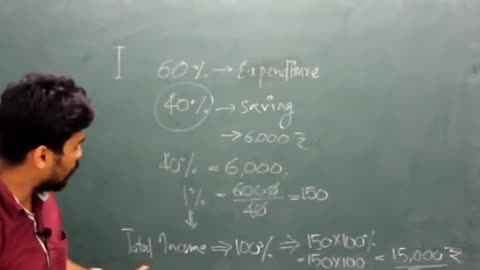 I 60% → Expenditure
40% → saving
→ 6,000 ₹
40% = 6,000.
1% = 6000/40 = 150
Total Income ⇒ 100% ⇒ 150×100%
= 150×100 = 15,000 ₹